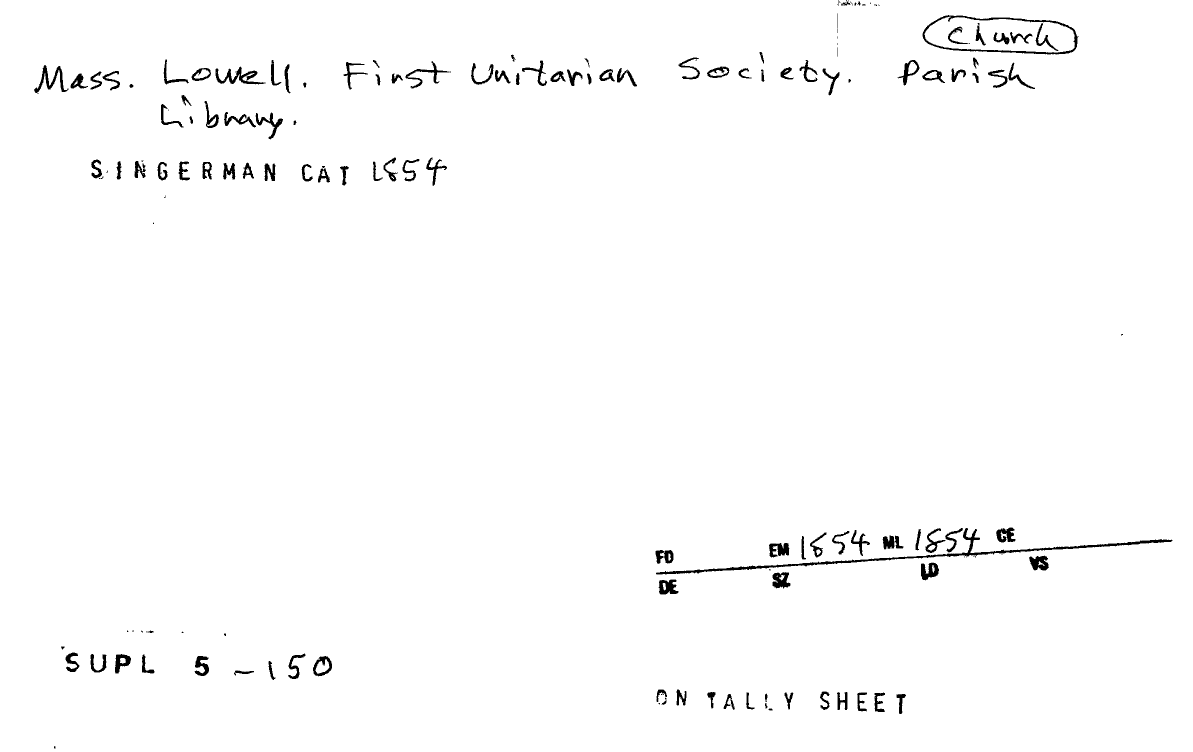 Church
Mass. Lowell. First Unitarian Society. Parish
Library.
SINGERMAN CAT 1854
FD EM 1854 ML 1854 CE
DE SZ LD VS
SUPL 5 - 150
ON TALLY SHEET